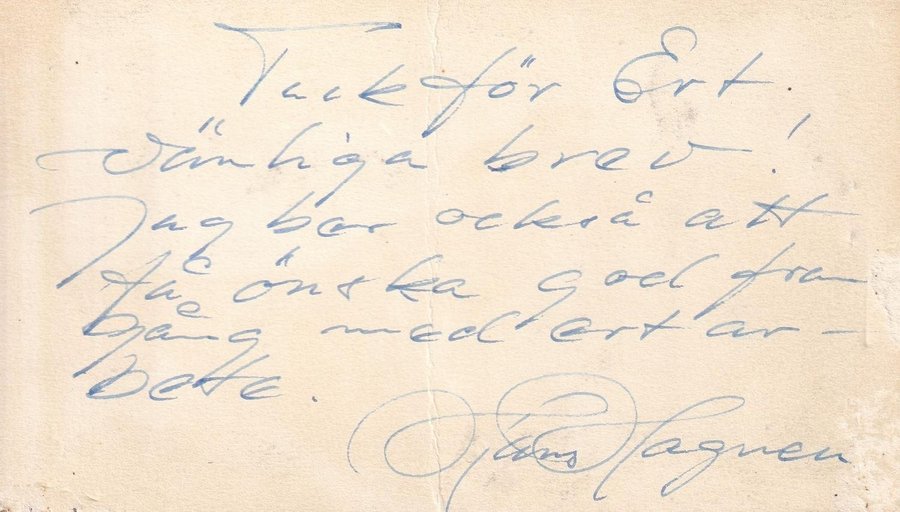 Tack för Ert
vänliga brev!
Jag ber också att
få önska god fram
gång med ert ar-
bete.